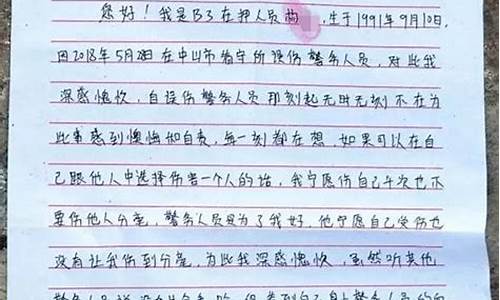 您好！我是B3在押人员尚，生于1991年9月10日.
因2018年5月2日在中山市看守所误伤警务人员，对此我
深感愧疚，自误伤警务人员那刻起无时无刻不在为
此事感到懊悔和自责，每一刻都在想，如果可以在自
己跟他人中选择伤害一个人的话，我宁愿伤自己千次也不
要伤他人分毫，警务人员是为了我好，他宁愿自己受伤也
没有让我伤到分毫，为此我深感愧疚，虽然听其他
警务人员说没有什么